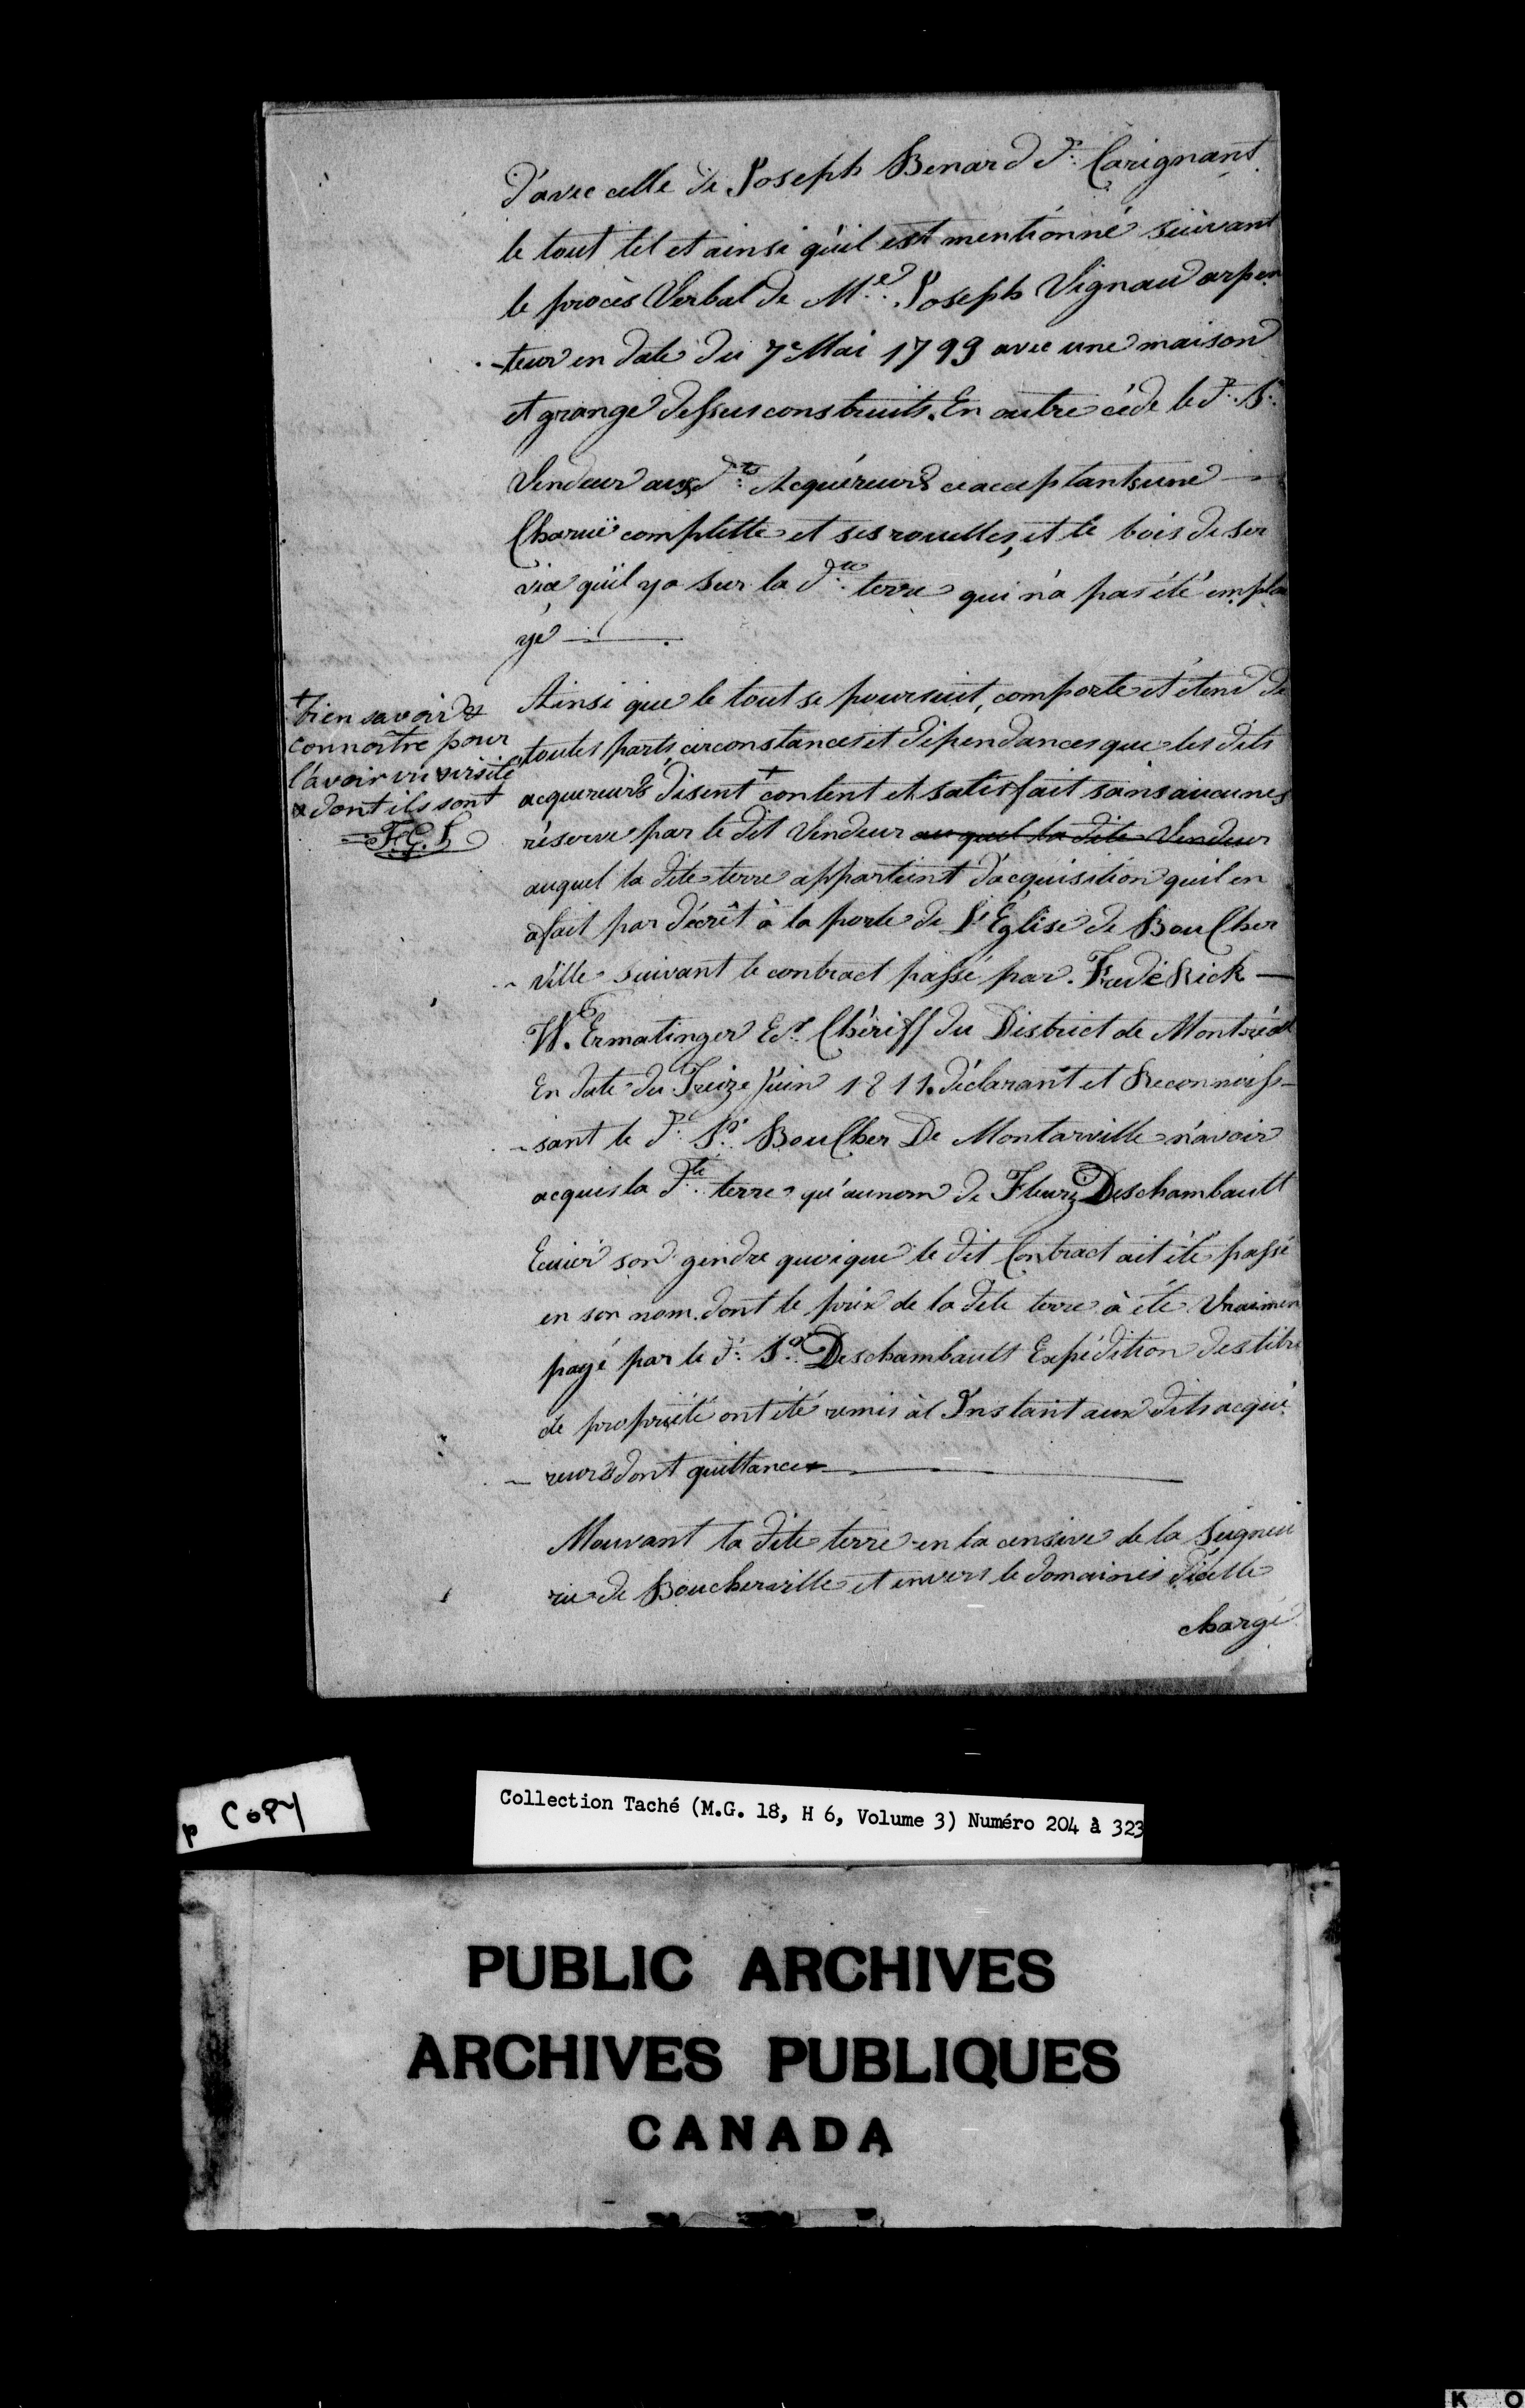 d'avec celle de Joseph Benard dt. Carignant
le tout tel et ainsi qu'il est mentionné suivant
le procès Verbal de Mre. Joseph Vignau arpen
-teur en date du 7e Mai 1799 avec une maison
et grange dessus construits. En outre cède le dt. Sr.
Vendeur aux dts. Acquéreurs ce acceptants une
Charuë complette et ses rouelles, et le bois de ser
vice qu'il y a sur la dte. terre qui n'a pas été emplo
yé
Ainsi que le tout se poursuit, comporte et étend de
toutes parts, circonstances et dépendances que les dits
acquereurs disent + content et satisfait sans aucunes
réserve par le dit Vendeur au quel la dite Vendeur
auquel la dite terre appartient d'acquisition qu'il en
a fait par décrêt à la porte de L'Eglise de BouCher
ville suivant le contract passé par Fredérick
W. Ermatinger Er. Chériff du District de Montréal
En date du Treize Juin 1811. déclarant et Reconnois-
-sant le dt. Sr. BouCher De Montarville n'avoir
acquis la dte. terre qu'au nom de Fleuri Deschambault
Ecuier son gendre quoique le dit Contract ait été passé
en son nom. dont le prix de la dite terre à été Vraimen
payé par le dt. Sr. Deschambault Expédition des titre
de propriété ont été remis à l'Instant aux dits acqué
-reurs dont quittance
Mouvant la dite terre en la censive de la Seigneu
rie de Boucherville et envers le domaines d'icelle
chargé
+ bien savoir &
connoître pour
l'avoir vu visité
& dont ils sont
F.G.L
p COPY
Collection Taché (M.G. 18, H 6, Volume 3) Numéro 204 à 323
PUBLIC ARCHIVES
ARCHIVES PUBLIQUES
CANADA
K O